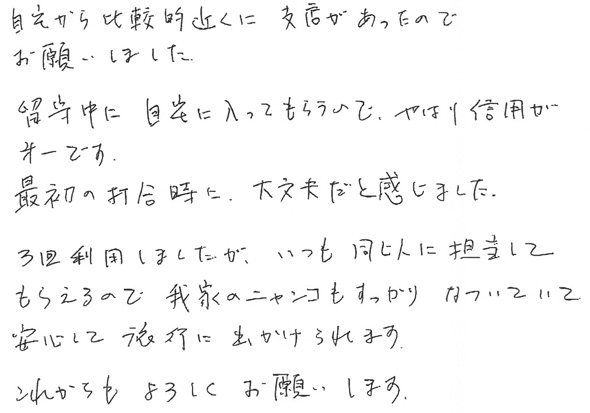 自宅から比較的近くに 支店があったので
お願いしました.
留守中に 自宅に入ってもらうので、やはり信用が
第一です.
最初の打合時に、大丈夫だと感じました.
3回利用しましたが、いつも同じ人に担当して
もらえるので 我家のニャンコもすっかり なついていて
安心して 旅行に出かけられます.
これからも よろしく お願いします.